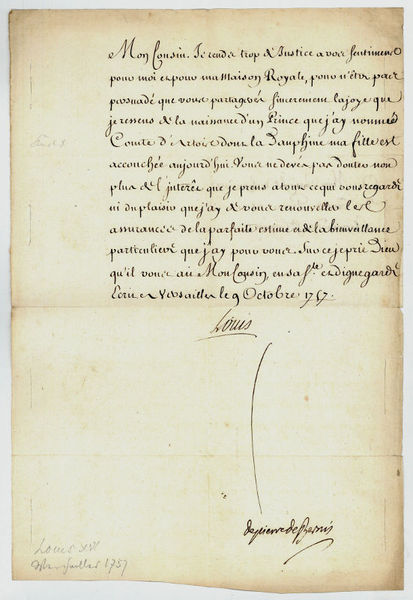 Mon Cousin. Je rends trop de Justice a vos sentimens
pour moi et pour ma Maison Royale, pour n'être pas
persuadé que vous partagerés sincerement la joye que
je ressens de la naissance d'un Prince que j'ay nommé
Comte d'Artois dont la Dauphine ma fille est
accouchée aujourd'hui. Vous ne devés pas douter non
plus de l'intérêt que je prens à tout ce qui vous regarde
ni du plaisir que j'ay de vous renouveller les
assurances de la parfaite estime et de la bienveillance
particuliere que j'ay pour vous. Sur ce je prie Dieu
qu'il vous ait Mon Cousin, en sa Ste et digne garde
Ecrit à Versailles le 9 Octobre 1757.
Louis
de pierre de Bernis
Louis XV
Versailles 1757